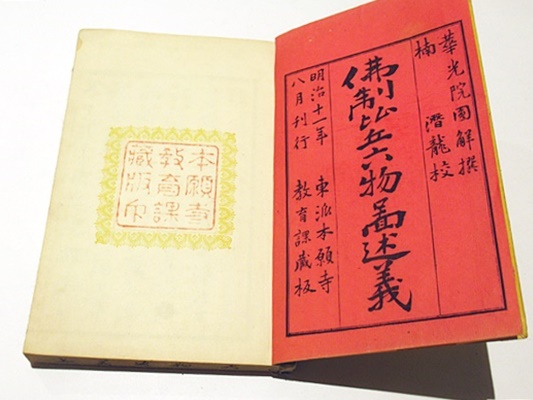 華光院圓解撰
楠　潛龍校
佛制比丘六物啚述義
明治十一年　東派本願寺
八月刊行　教育課蔵板
本願寺
教育課
藏版印